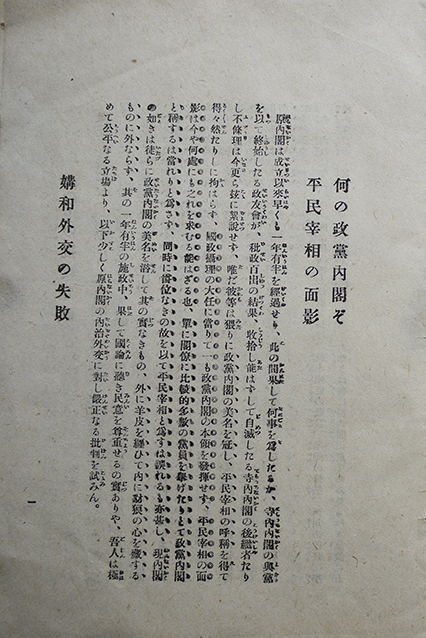 何の政黨內閣ぞ
平民宰相の面影
原內閣は成立以來早くも一年有半を經過せり、此の間果して何事を爲したるか、寺內內閣の與黨
を以て終始したる政友會が、秕政百出の結果、收拾し能はずして自滅したる寺內內閣の後繼者たり
し不條理は今更ら玆に絮說せず、唯だ彼等は猥りに政黨內閣の美名を冠し、平民宰相の呼稱を得て
得々然たりしに拘はらず、國政攝理の大任に當りて一も政黨內閣の本領を發揮せず、平民宰相の面
影は今や何處にも之れを求むる能はざる也、單に閣僚に比較的多數の黨員を擧げたりとて政黨內閣
と稱するは當れりと爲さず、同時に爵位なきの故を以て平民宰相と爲すは誤れるも亦甚し、現內閣
の如きは徒らに政黨內閣の美名を濫して其の實なきもの、外に羊皮を纒ひて內に豺狼の心を藏する
ものに外ならず、其の一年有半の施政中、果して國論に聽き民意を尊重せるの實ありや、吾人は極
めて公平なる立場より、以下少しく原內閣の內治外交に對し嚴正なる批判を試みん。
媾和外交の失敗
一